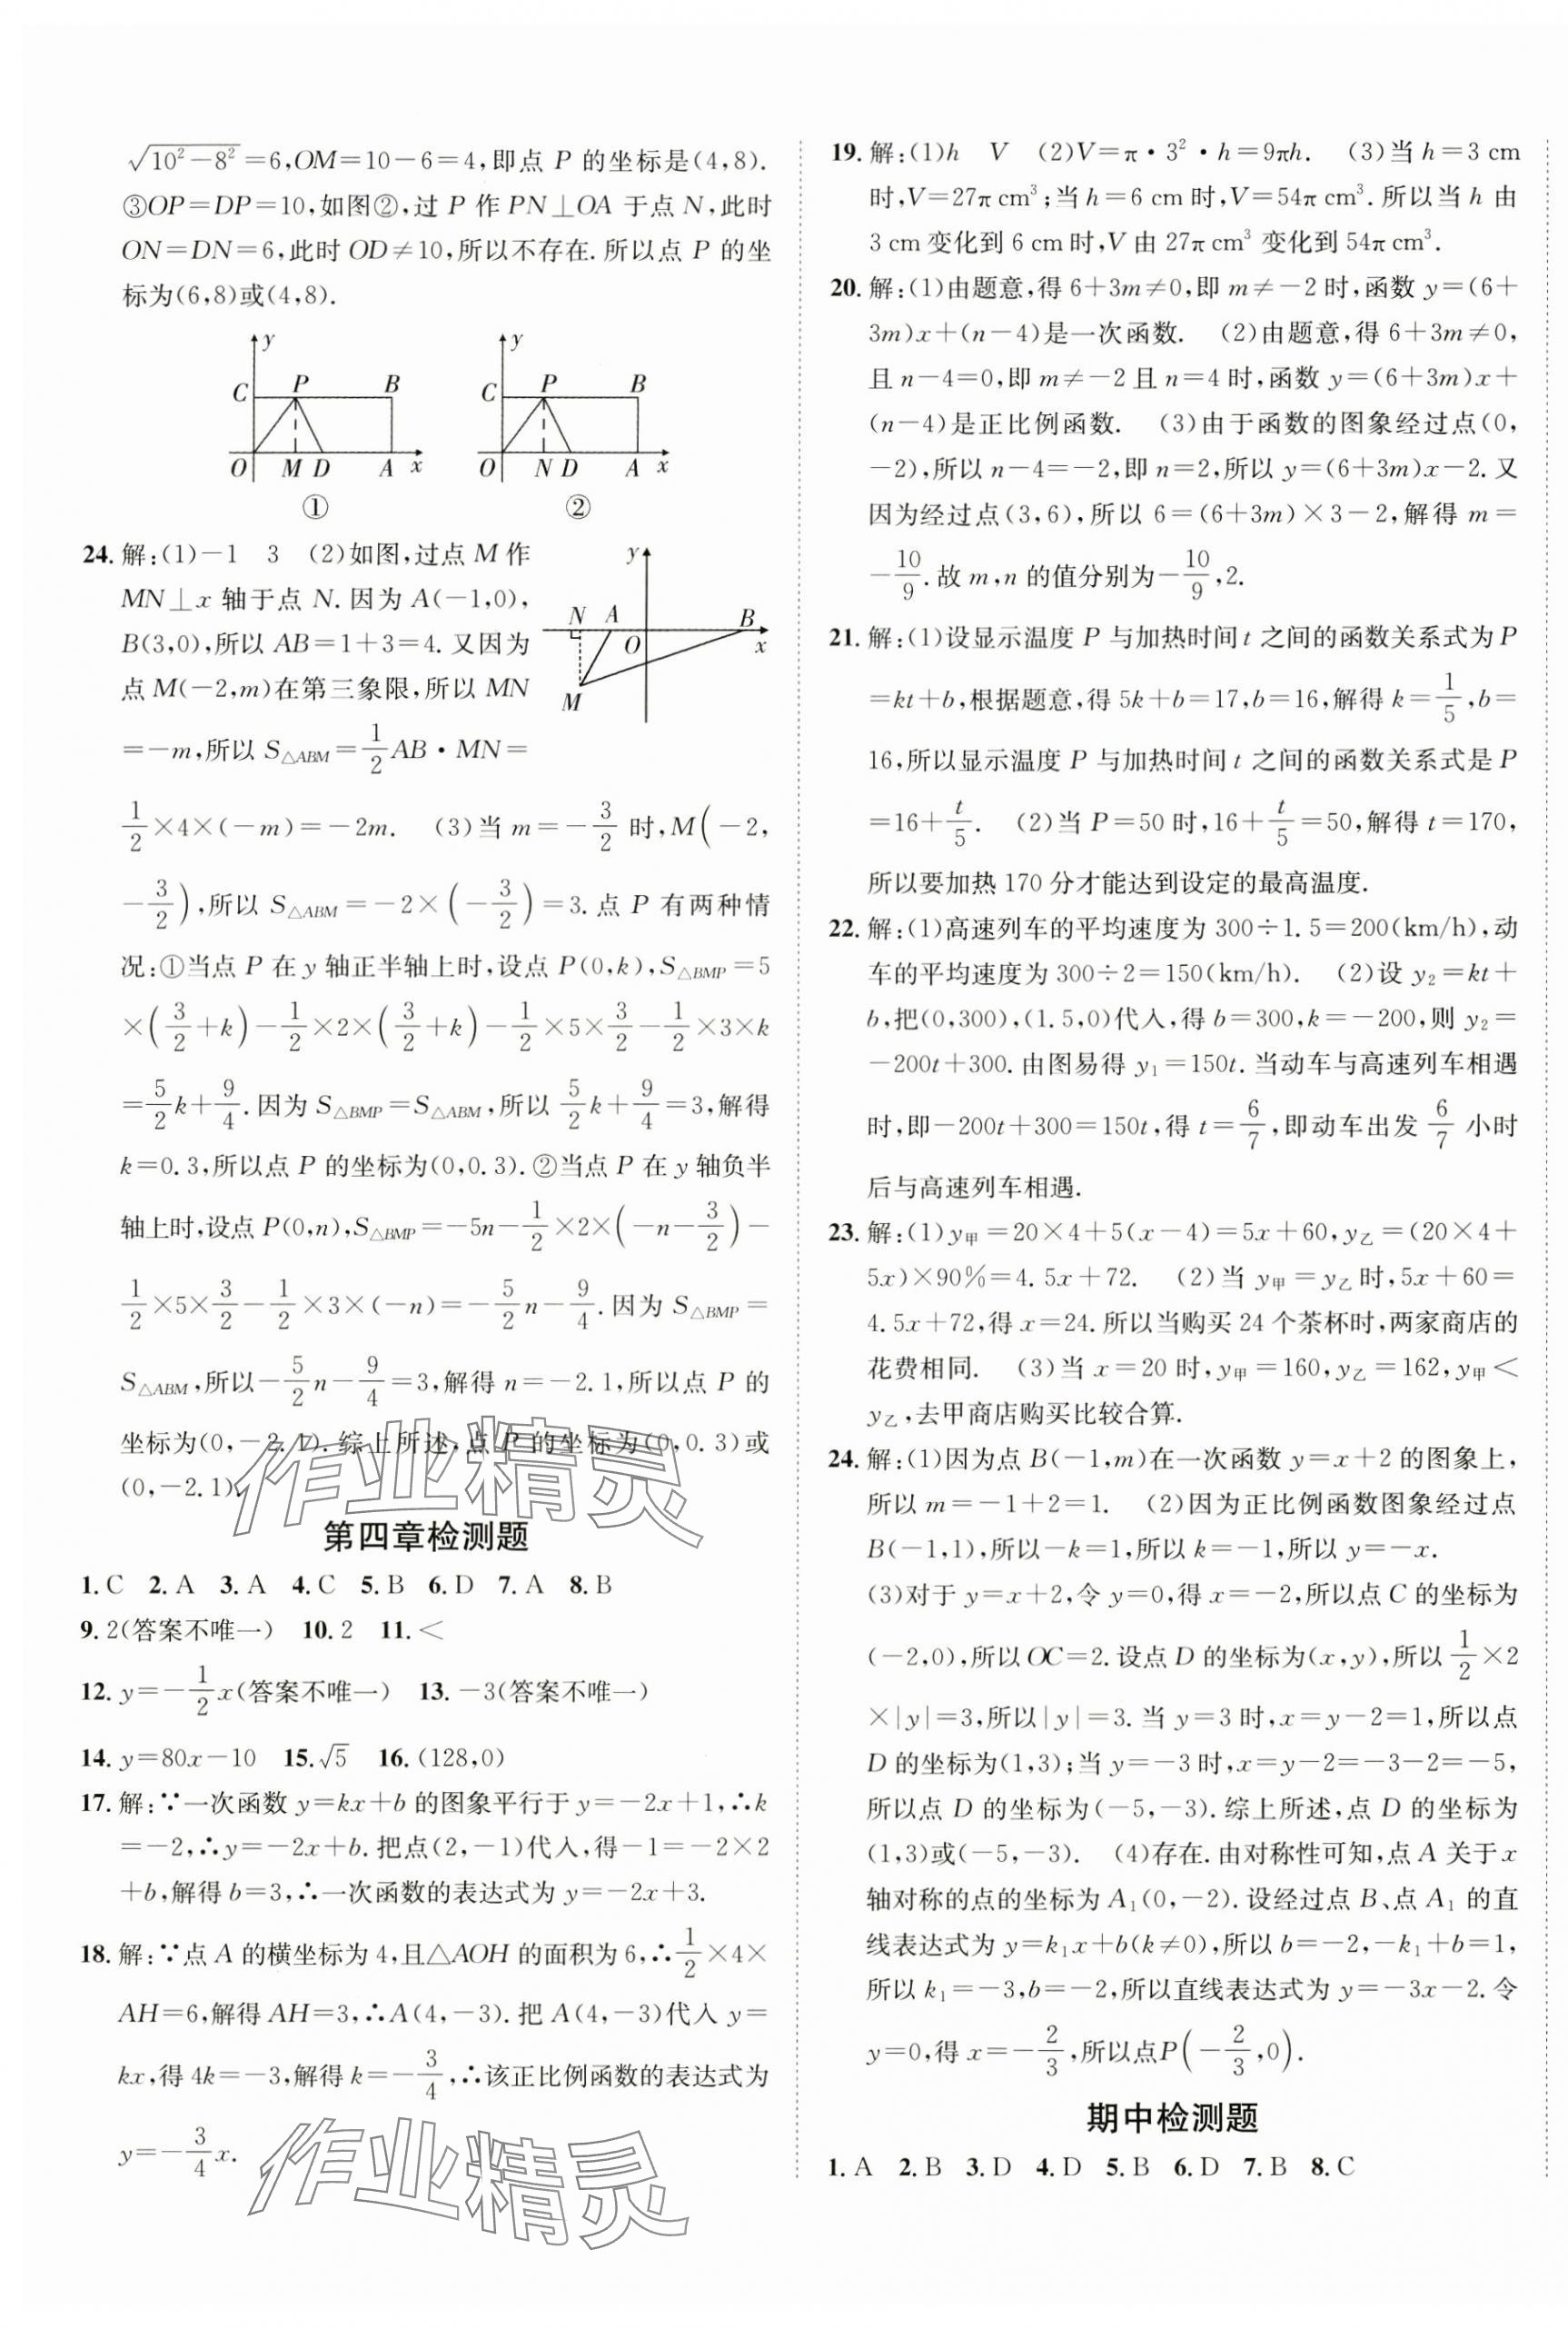 √(10²－8²)＝6,OM＝10－6＝4,即点 P 的坐标是(4,8).
③OP＝DP＝10,如图②,过 P 作 PN⊥OA 于点 N,此时
ON＝DN＝6,此时 OD≠10,所以不存在.所以点 P 的坐
标为(6,8)或(4,8).
y C P B O M D A x ①
y C P B O N D A x ②
24. 解:(1)－1　3　(2)如图,过点 M 作
MN⊥x 轴于点 N.因为 A(－1,0),
B(3,0),所以 AB＝1＋3＝4.又因为
点 M(－2,m)在第三象限,所以 MN
＝－m,所以 S△ABM＝1/2 AB·MN＝
y N A B O x M
1/2×4×(－m)＝－2m.　(3)当 m＝－3/2 时,M(－2,
－3/2),所以 S△ABM＝－2×(－3/2)＝3.点 P 有两种情
况:①当点 P 在 y 轴正半轴上时,设点 P(0,k),S△BMP＝5
×(3/2＋k)－1/2×2×(3/2＋k)－1/2×5×3/2－1/2×3×k
＝5/2k＋9/4.因为 S△BMP＝S△ABM,所以 5/2k＋9/4＝3,解得
k＝0.3,所以点 P 的坐标为(0,0.3).②当点 P 在 y 轴负半
轴上时,设点 P(0,n),S△BMP＝－5n－1/2×2×(－n－3/2)－
1/2×5×3/2－1/2×3×(－n)＝－5/2n－9/4.因为 S△BMP＝
S△ABM,所以－5/2n－9/4＝3,解得 n＝－2.1,所以点 P 的
坐标为(0,－2.1).综上所述,点 P 的坐标为(0,0.3)或
(0,－2.1).
作业精灵
第四章检测题
1. C　2. A　3. A　4. C　5. B　6. D　7. A　8. B
9. 2(答案不唯一)　10. 2　11. ＜
12. y＝－1/2x(答案不唯一)　13. －3(答案不唯一)
14. y＝80x－10　15. √5　16. (128,0)
17. 解:∵一次函数 y＝kx＋b 的图象平行于 y＝－2x＋1,∴k
＝－2,∴y＝－2x＋b.把点(2,－1)代入,得－1＝－2×2
＋b,解得 b＝3,∴一次函数的表达式为 y＝－2x＋3.
18. 解:∵点 A 的横坐标为 4,且△AOH 的面积为 6,∴1/2×4×
AH＝6,解得 AH＝3,∴A(4,－3).把 A(4,－3)代入 y＝
kx,得 4k＝－3,解得 k＝－3/4,∴该正比例函数的表达式为
y＝－3/4x.
作业精灵
19. 解:(1)h　V　(2)V＝π·3²·h＝9πh.　(3)当 h＝3 cm
时,V＝27π cm³;当 h＝6 cm 时,V＝54π cm³.所以当 h 由
3 cm 变化到 6 cm 时,V 由 27π cm³ 变化到 54π cm³.
20. 解:(1)由题意,得 6＋3m≠0,即 m≠－2 时,函数 y＝(6＋
3m)x＋(n－4)是一次函数.　(2)由题意,得 6＋3m≠0,
且 n－4＝0,即 m≠－2 且 n＝4 时,函数 y＝(6＋3m)x＋
(n－4)是正比例函数.　(3)由于函数的图象经过点(0,
－2),所以 n－4＝－2,即 n＝2,所以 y＝(6＋3m)x－2.又
因为经过点(3,6),所以 6＝(6＋3m)×3－2,解得 m＝
－10/9.故 m,n 的值分别为－10/9,2.
21. 解:(1)设显示温度 P 与加热时间 t 之间的函数关系式为 P
＝kt＋b,根据题意,得 5k＋b＝17,b＝16,解得 k＝1/5,b＝
16,所以显示温度 P 与加热时间 t 之间的函数关系式是 P
＝16＋t/5.　(2)当 P＝50 时,16＋t/5＝50,解得 t＝170,
所以要加热 170 分才能达到设定的最高温度.
22. 解:(1)高速列车的平均速度为 300÷1.5＝200(km/h),动
车的平均速度为 300÷2＝150(km/h).　(2)设 y₂＝kt＋
b,把(0,300),(1.5,0)代入,得 b＝300,k＝－200,则 y₂＝
－200t＋300.由图易得 y₁＝150t.当动车与高速列车相遇
时,即－200t＋300＝150t,得 t＝6/7,即动车出发 6/7 小时
后与高速列车相遇.
23. 解:(1)y甲＝20×4＋5(x－4)＝5x＋60,y乙＝(20×4＋
5x)×90%＝4.5x＋72.　(2)当 y甲＝y乙时,5x＋60＝
4.5x＋72,得 x＝24.所以当购买 24 个茶杯时,两家商店的
花费相同.　(3)当 x＝20 时,y甲＝160,y乙＝162,y甲＜
y乙,去甲商店购买比较合算.
24. 解:(1)因为点 B(－1,m)在一次函数 y＝x＋2 的图象上,
所以 m＝－1＋2＝1.　(2)因为正比例函数图象经过点
B(－1,1),所以－k＝1,所以 k＝－1,所以 y＝－x.
(3)对于 y＝x＋2,令 y＝0,得 x＝－2,所以点 C 的坐标为
(－2,0),所以 OC＝2.设点 D 的坐标为(x,y),所以 1/2×2
×|y|＝3,所以|y|＝3.当 y＝3 时,x＝y－2＝1,所以点
D 的坐标为(1,3);当 y＝－3 时,x＝y－2＝－3－2＝－5,
所以点 D 的坐标为(－5,－3).综上所述,点 D 的坐标为
(1,3)或(－5,－3).　(4)存在.由对称性可知,点 A 关于 x
轴对称的点的坐标为 A₁(0,－2).设经过点 B、点 A₁ 的直
线表达式为 y＝k₁x＋b(k≠0),所以 b＝－2,－k₁＋b＝1,
所以 k₁＝－3,b＝－2,所以直线表达式为 y＝－3x－2.令
y＝0,得 x＝－2/3,所以点P(－2/3,0).
期中检测题
1. A　2. B　3. D　4. D　5. B　6. D　7. B　8. C